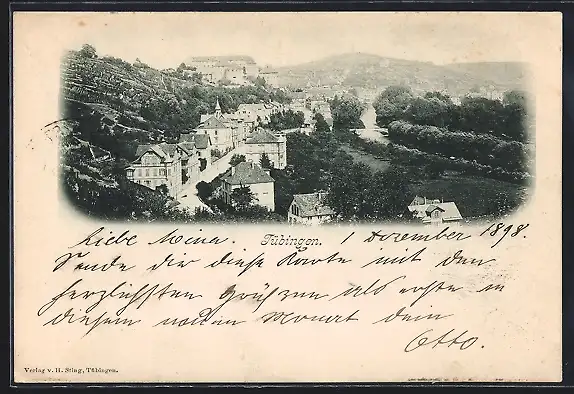 Tübingen.
liebe Mina. 1 Dezember 1898.
Sende dir diese Karte mit den
herzlichsten Grüssen als erste in
diesem neuen Monat dein
Otto.
Verlag v. H. Sting, Tübingen.